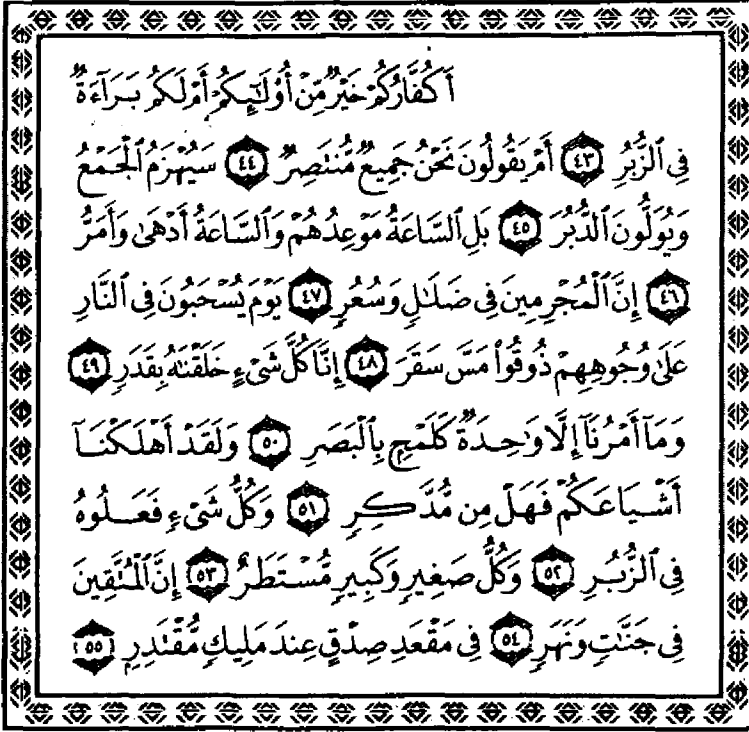 أَكُفَّارُكُمْ خَيْرٌ مِّنْ أُوْلَٰٓئِكُمْ أَمْ لَكُم بَرَآءَةٌ
فِي ٱلزُّبُرِ ٤٣ أَمْ يَقُولُونَ نَحْنُ جَمِيعٌ مُّنتَصِرٌ ٤٤ سَيُهْزَمُ ٱلْجَمْعُ
وَيُوَلُّونَ ٱلدُّبُرَ ٤٥ بَلِ ٱلسَّاعَةُ مَوْعِدُهُمْ وَٱلسَّاعَةُ أَدْهَىٰ وَأَمَرُّ
٤٦ إِنَّ ٱلْمُجْرِمِينَ فِي ضَلَٰلٍ وَسُعُرٍ ٤٧ يَوْمَ يُسْحَبُونَ فِي ٱلنَّارِ
عَلَىٰ وُجُوهِهِمْ ذُوقُوا۟ مَسَّ سَقَرَ ٤٨ إِنَّا كُلَّ شَىْءٍ خَلَقْنَٰهُ بِقَدَرٍ ٤٩
وَمَآ أَمْرُنَآ إِلَّا وَٰحِدَةٌ كَلَمْحٍۭ بِٱلْبَصَرِ ٥٠ وَلَقَدْ أَهْلَكْنَآ
أَشْيَاعَكُمْ فَهَلْ مِن مُّدَّكِرٍ ٥١ وَكُلُّ شَىْءٍ فَعَلُوهُ
فِي ٱلزُّبُرِ ٥٢ وَكُلُّ صَغِيرٍ وَكَبِيرٍ مُّسْتَطَرٌ ٥٣ إِنَّ ٱلْمُتَّقِينَ
فِي جَنَّٰتٍ وَنَهَرٍ ٥٤ فِي مَقْعَدِ صِدْقٍ عِندَ مَلِيكٍ مُّقْتَدِرٍۭ ٥٥